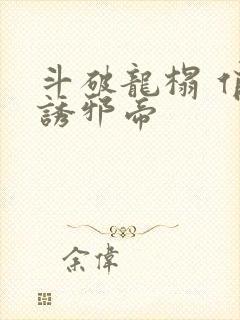 斗破龍榻 俏
誘邪帝
余偉